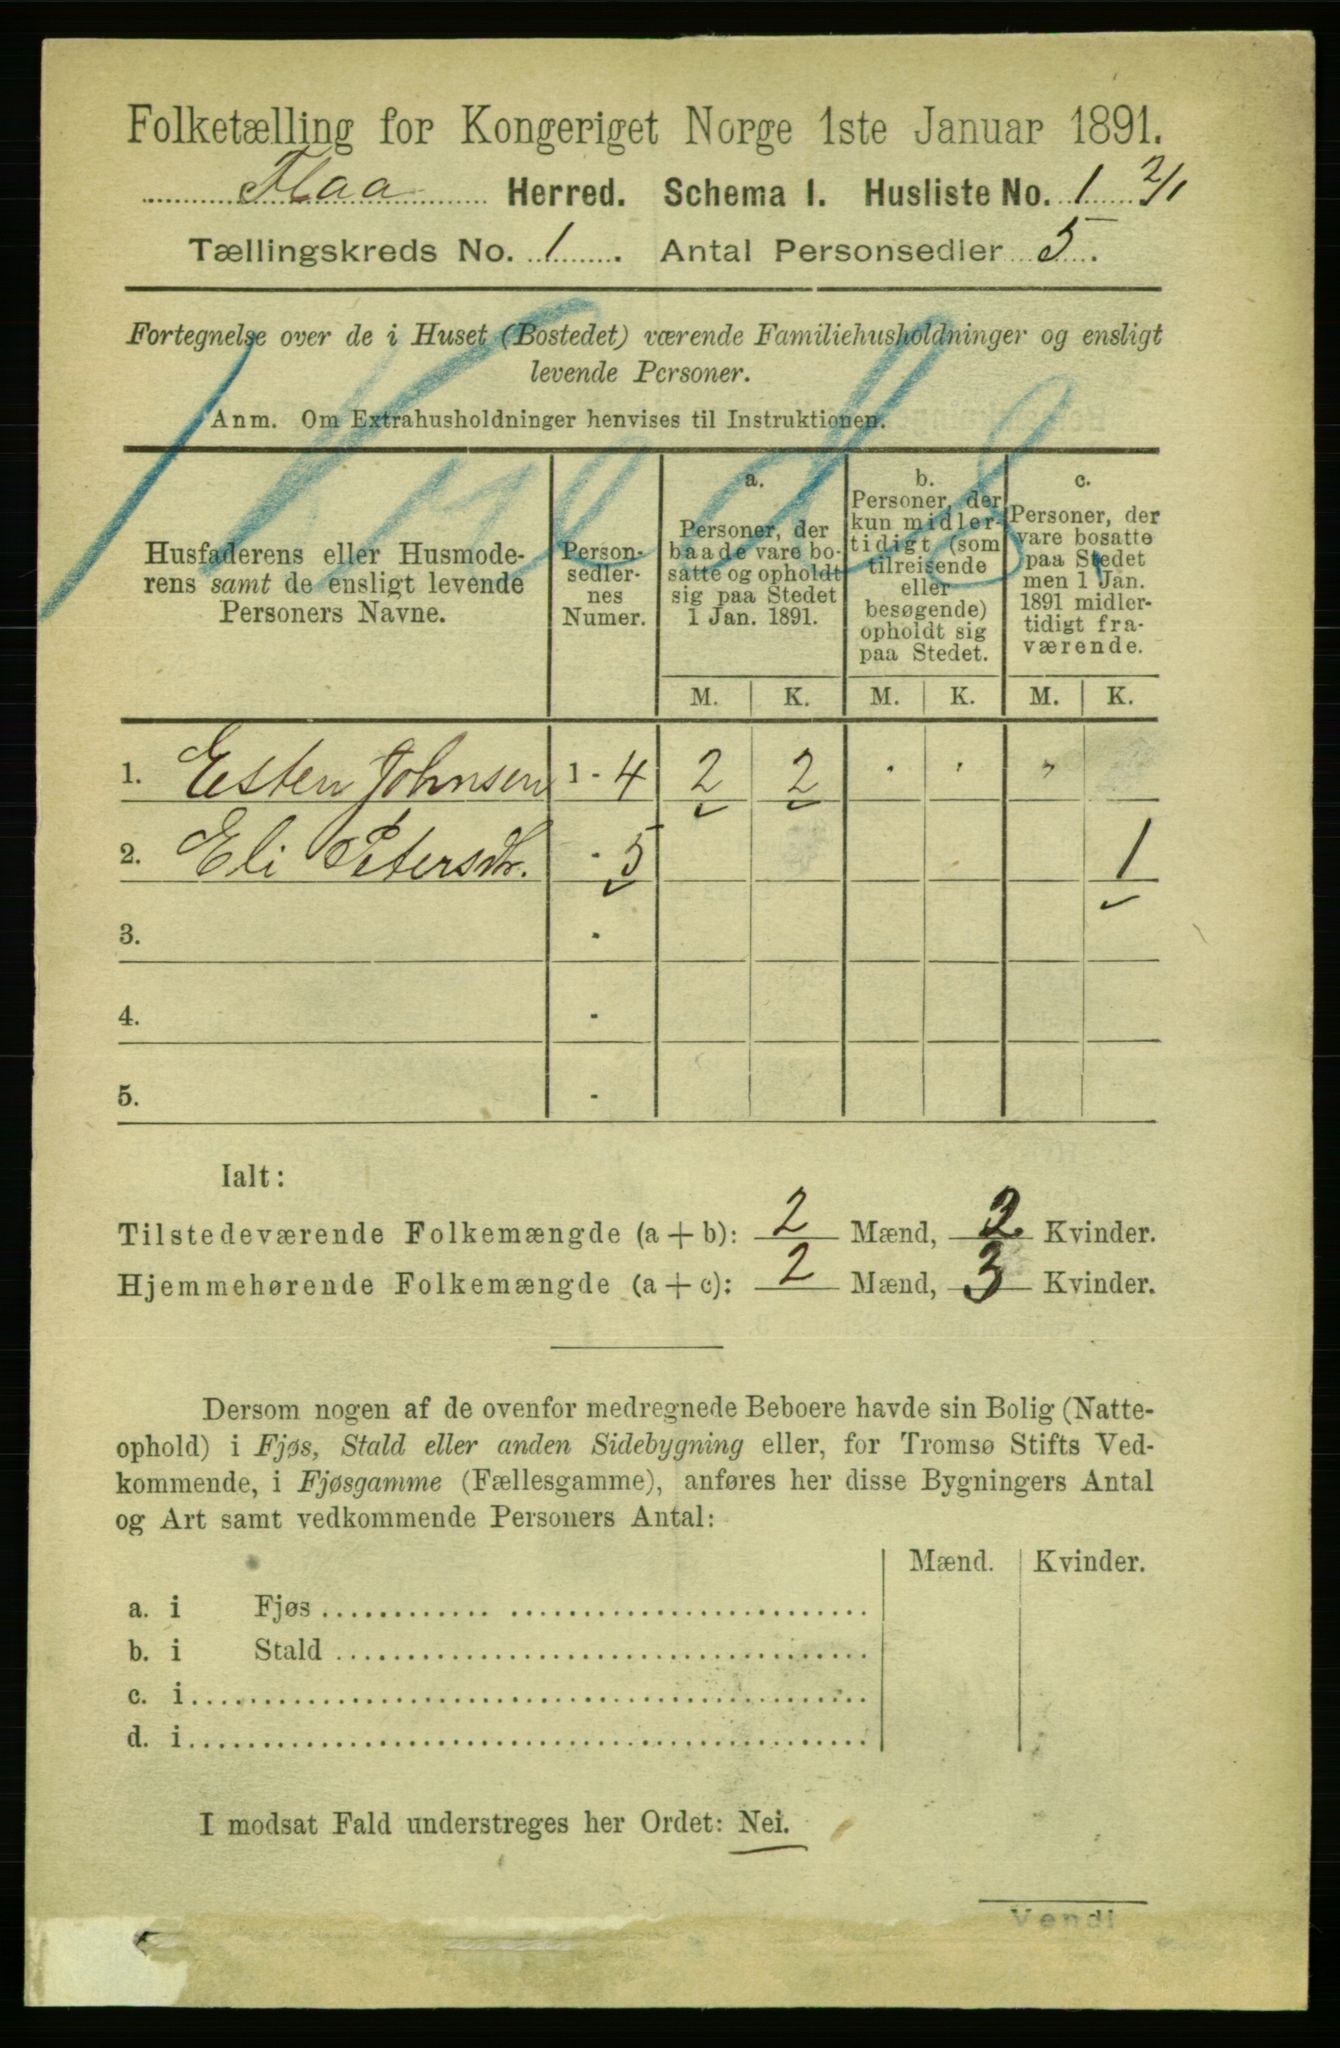 Folketælling for Kongeriget Norge 1ste Januar 1891.
Flaa Herred. Schema I. Husliste No. 1 2/1
Tællingskreds No. 1. Antal Personsedler 5.
Fortegnelse over de i Huset (Bostedet) værende Familiehusholdninger og ensligt
levende Personer.
Anm. Om Extrahusholdninger henvises til Instruktionen.
Husfaderens eller Husmode-
rens samt de ensligt levende
Personers Navne.
Person-
sedler-
nes
Numer.
a.
Personer, der
baade vare bo-
satte og opholdt
sig paa Stedet
1 Jan. 1891.
b.
Personer, der
kun midler-
tidigt (som
tilreisende
eller
besøgende)
opholdt sig
paa Stedet.
c.
Personer, der
vare bosatte
paa Stedet
men 1 Jan.
1891 midler-
tidigt fra-
værende.
M. K. M. K. M. K.
1. Esten Johnsen 1 - 4 2 2
2. Eli Petersdtr. - 5 1
3. -
4. -
5. -
Ialt:
Tilstedeværende Folkemængde (a + b): 2 Mænd, 2 Kvinder.
Hjemmehørende Folkemængde (a + c): 2 Mænd, 3 Kvinder.
Dersom nogen af de ovenfor medregnede Beboere havde sin Bolig (Natte-
ophold) i Fjøs, Stald eller anden Sidebygning eller, for Tromsø Stifts Ved-
kommende, i Fjøsgamme (Fællesgamme), anføres her disse Bygningers Antal
og Art samt vedkommende Personers Antal:
Mænd. Kvinder.
a. i Fjøs
b. i Stald
c. i
d. i
I modsat Fald understreges her Ordet: Nei.
Vend!